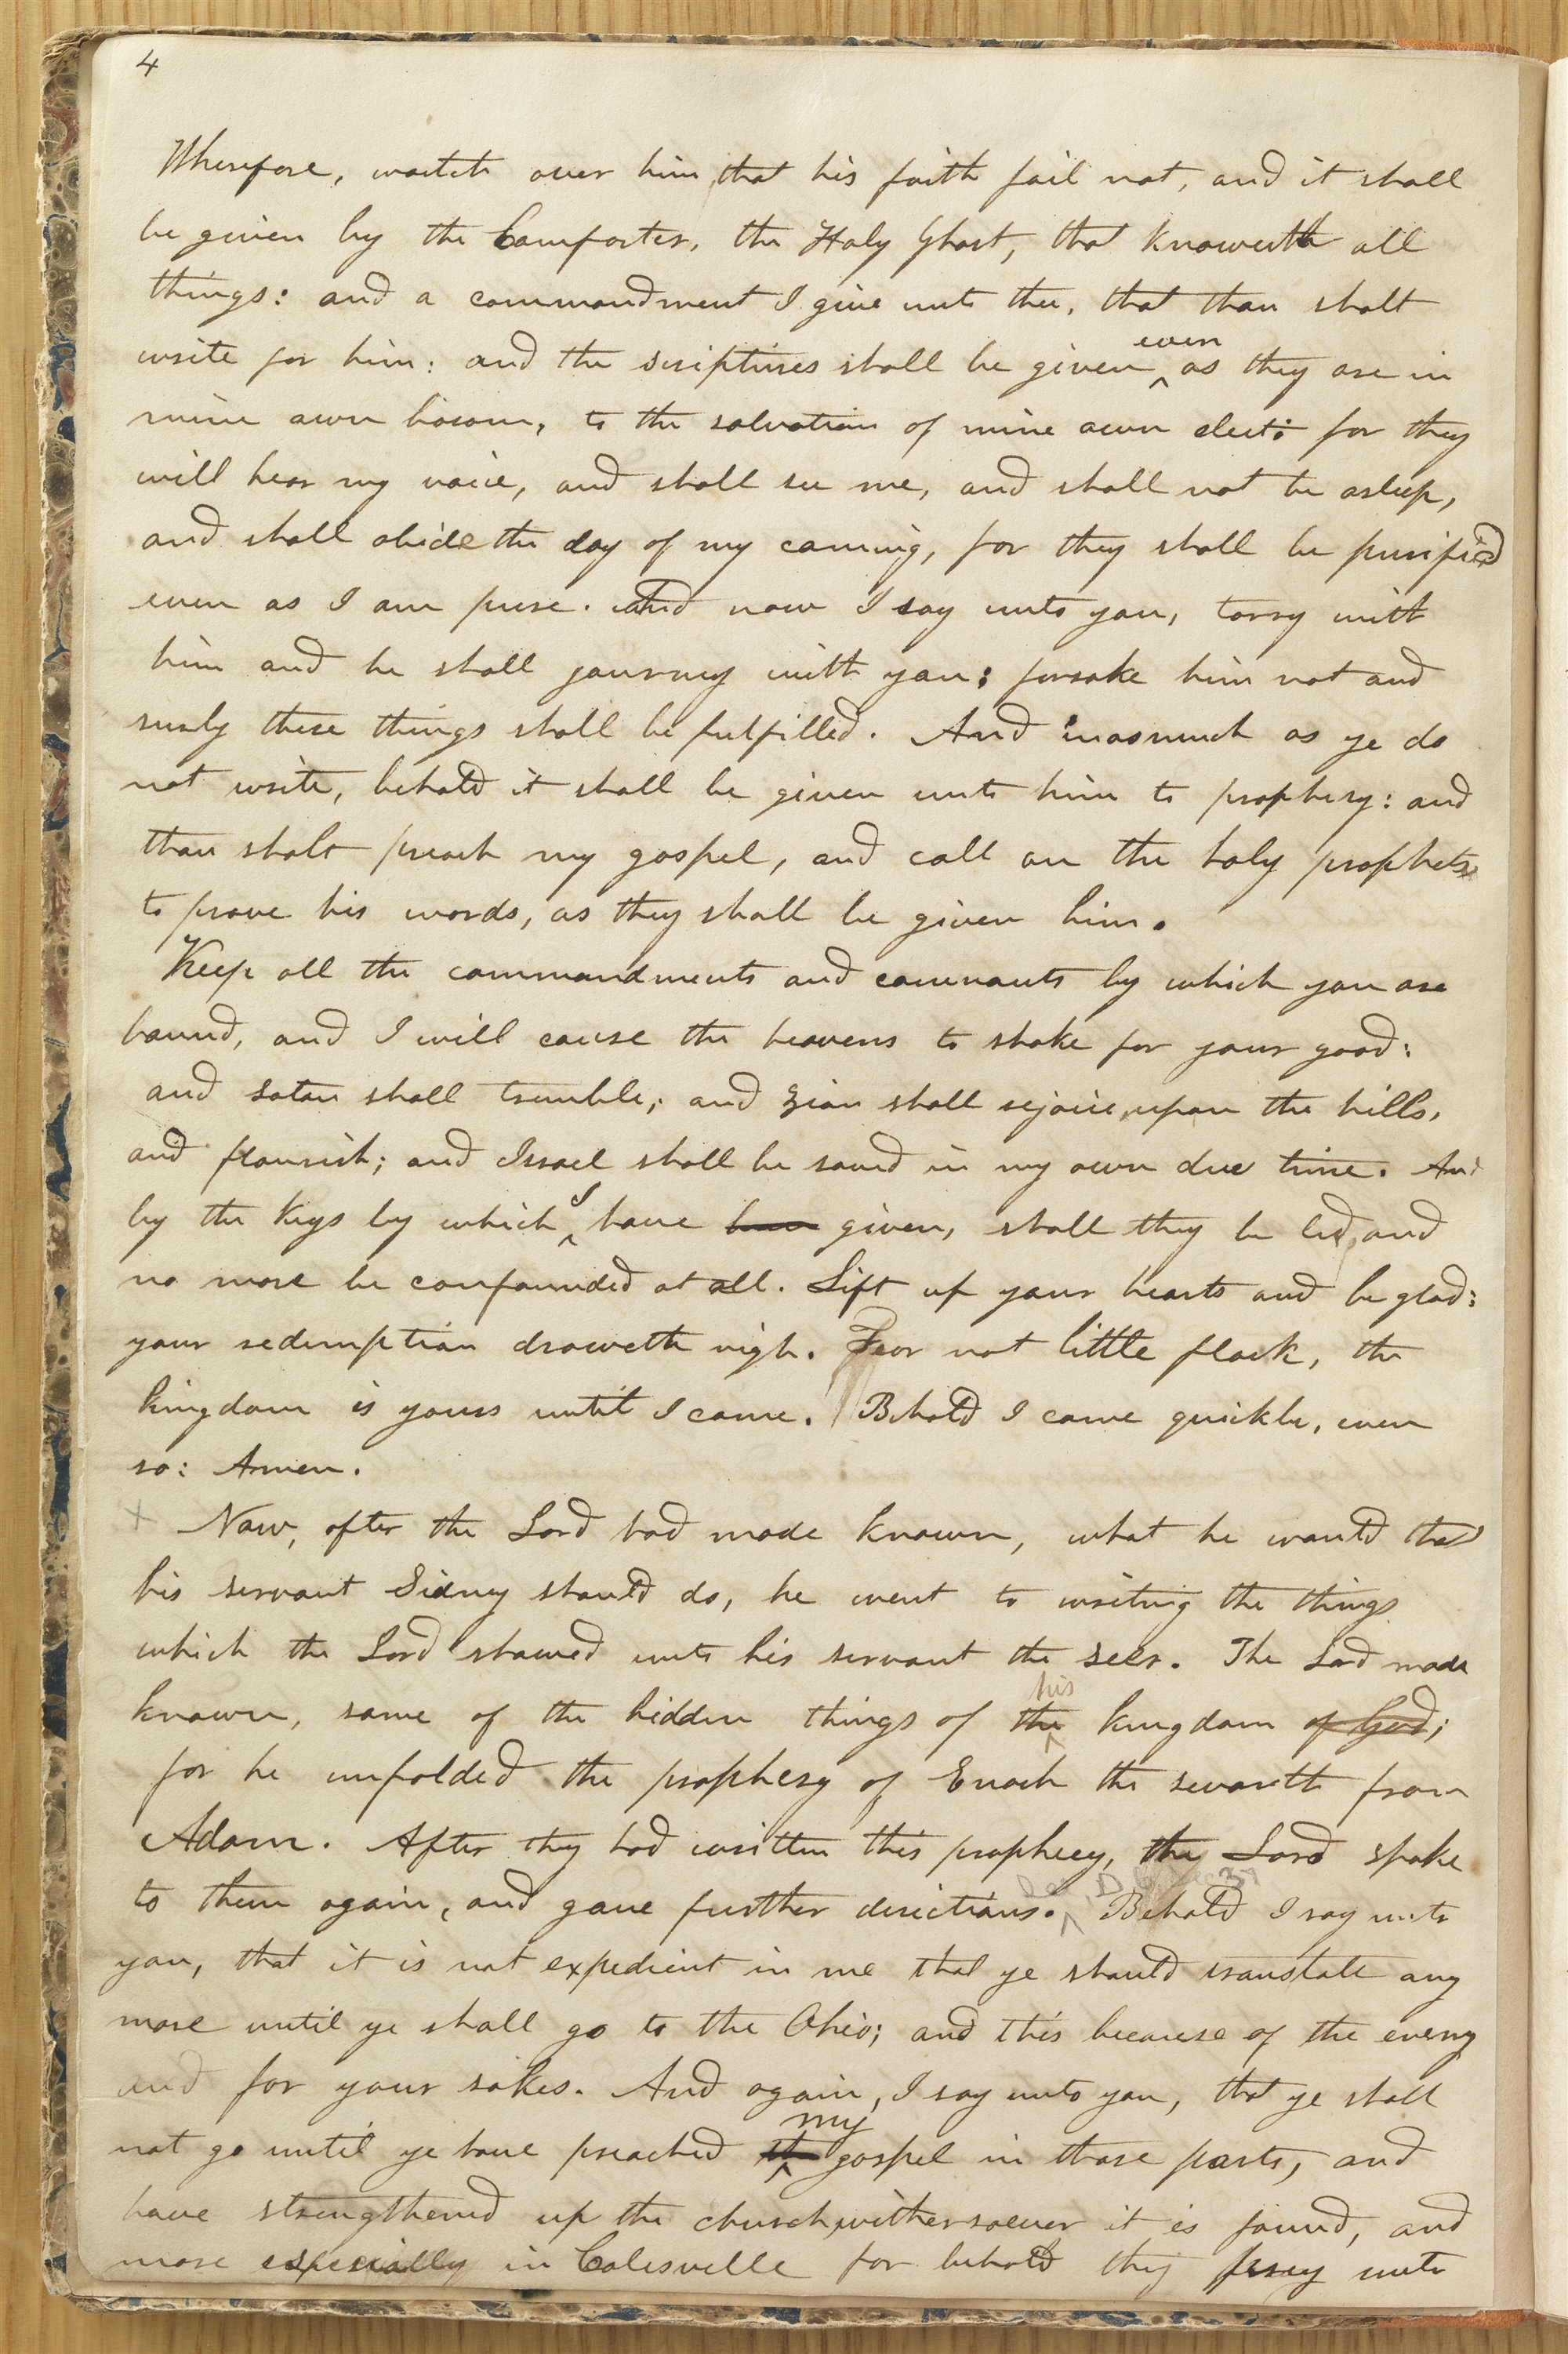 4
Wherefore, watch over him that his faith fail not, and it shall
be given by the Comforter, the Holy Ghost, that knoweth all
things: and a commandment I give unto thee, that thou shalt
write for him: and the scriptures shall be given even as they are in
mine own bosom, to the salvation of mine own elect: for they
will hear my voice, and shall see me, and shall not be asleep,
and shall abide the day of my coming, for they shall be purified
even as I am pure. And now I say unto you, tarry with
him and he shall journey with you; forsake him not and
surely these things shall be fulfilled. And inasmuch as ye do
not write, behold it shall be given unto him to prophesy: and
thou shalt preach my gospel, and call on the holy prophets
to prove his words, as they shall be given him.
Keep all the commandments and covenants by which you are
bound, and I will cause the heavens to shake for your good:
and satan shall tremble; and Zion shall rejoice, upon the hills,
and flourish; and Israel shall be saved in my own due time. And
by the keys by which I have been given, shall they be led, and
no more be confounded at all. Lift up your hearts and be glad:
your redemption draweth nigh. Fear not little flock, the
kingdom is yours until I come. Behold I come quickly, even
so: Amen.
+ Now, after the Lord had made known, what he would that
his servant Sidney should do, he went to writing the things
which the Lord showed unto his servant the seer. The Lord made
known, some of the hidden things of the his kingdom of God;
for he unfolded the prophesy of Enoch the seventh from
Adam. After they had written this prophecy, the Lord spoke
to them again, and gave further directions. Behold I say unto
you, that it is not expedient in me that ye should translate any
more until ye shall go to the Ohio; and this because of the enemy
and for your sakes. And again, I say unto you, that ye shall
not go until ye have preached my gospel in those parts, and
have strengthened up the church, withersoever it is found, and
more especially in Colesville for behold they pray unto